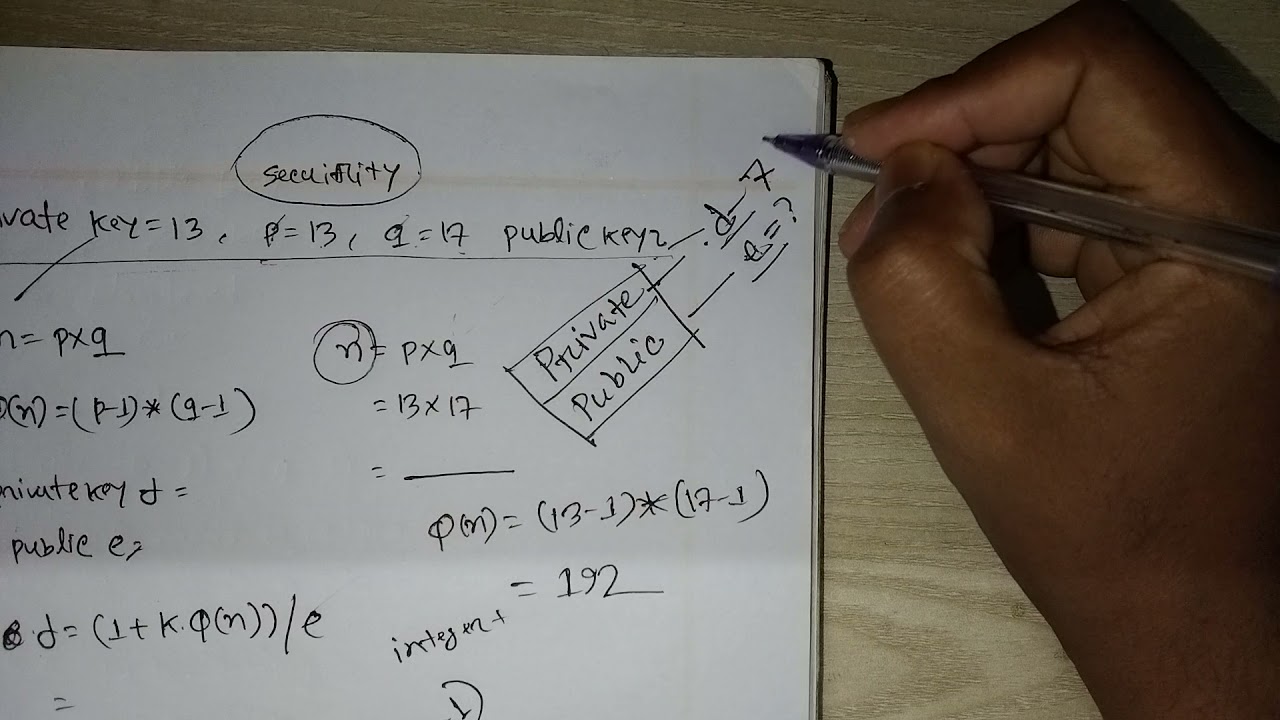 security
ivate key=13, p=13, q=17 public key?
d
e=?
Private
Public
n= p×q
φ(n)=(p-1)*(q-1)
private key d =
public e,
d= (1+k.φ(n))/e
=
n= p×q
= 13×17
=
φ(n)= (13-1)*(17-1)
= 192
integer
1)